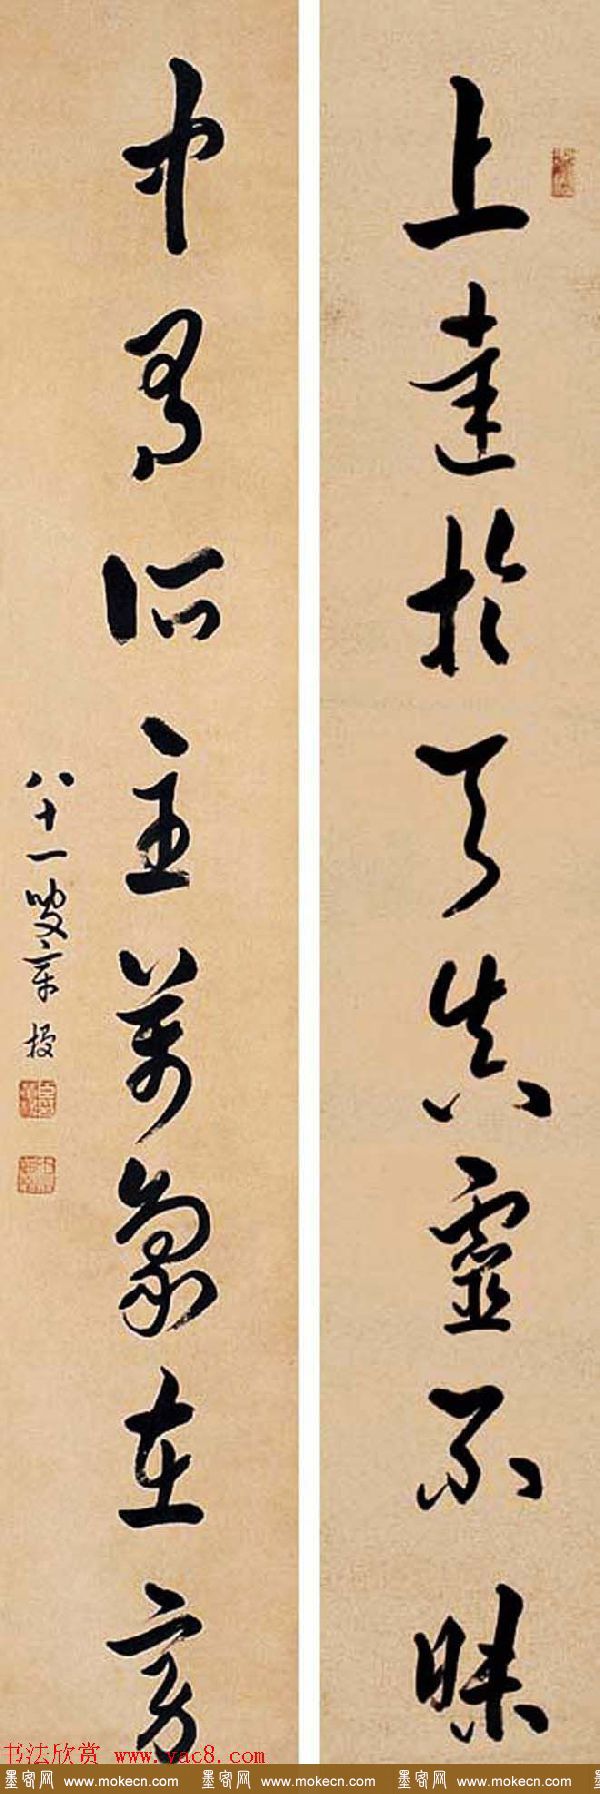 上達於天真靈不昧
中有所主萬象在旁
八十一叟章梫
书法欣赏 www.yac8.com
墨客网 www.mokecn.com 墨客网 www.mokecn.com 墨客网 www.mokecn.com